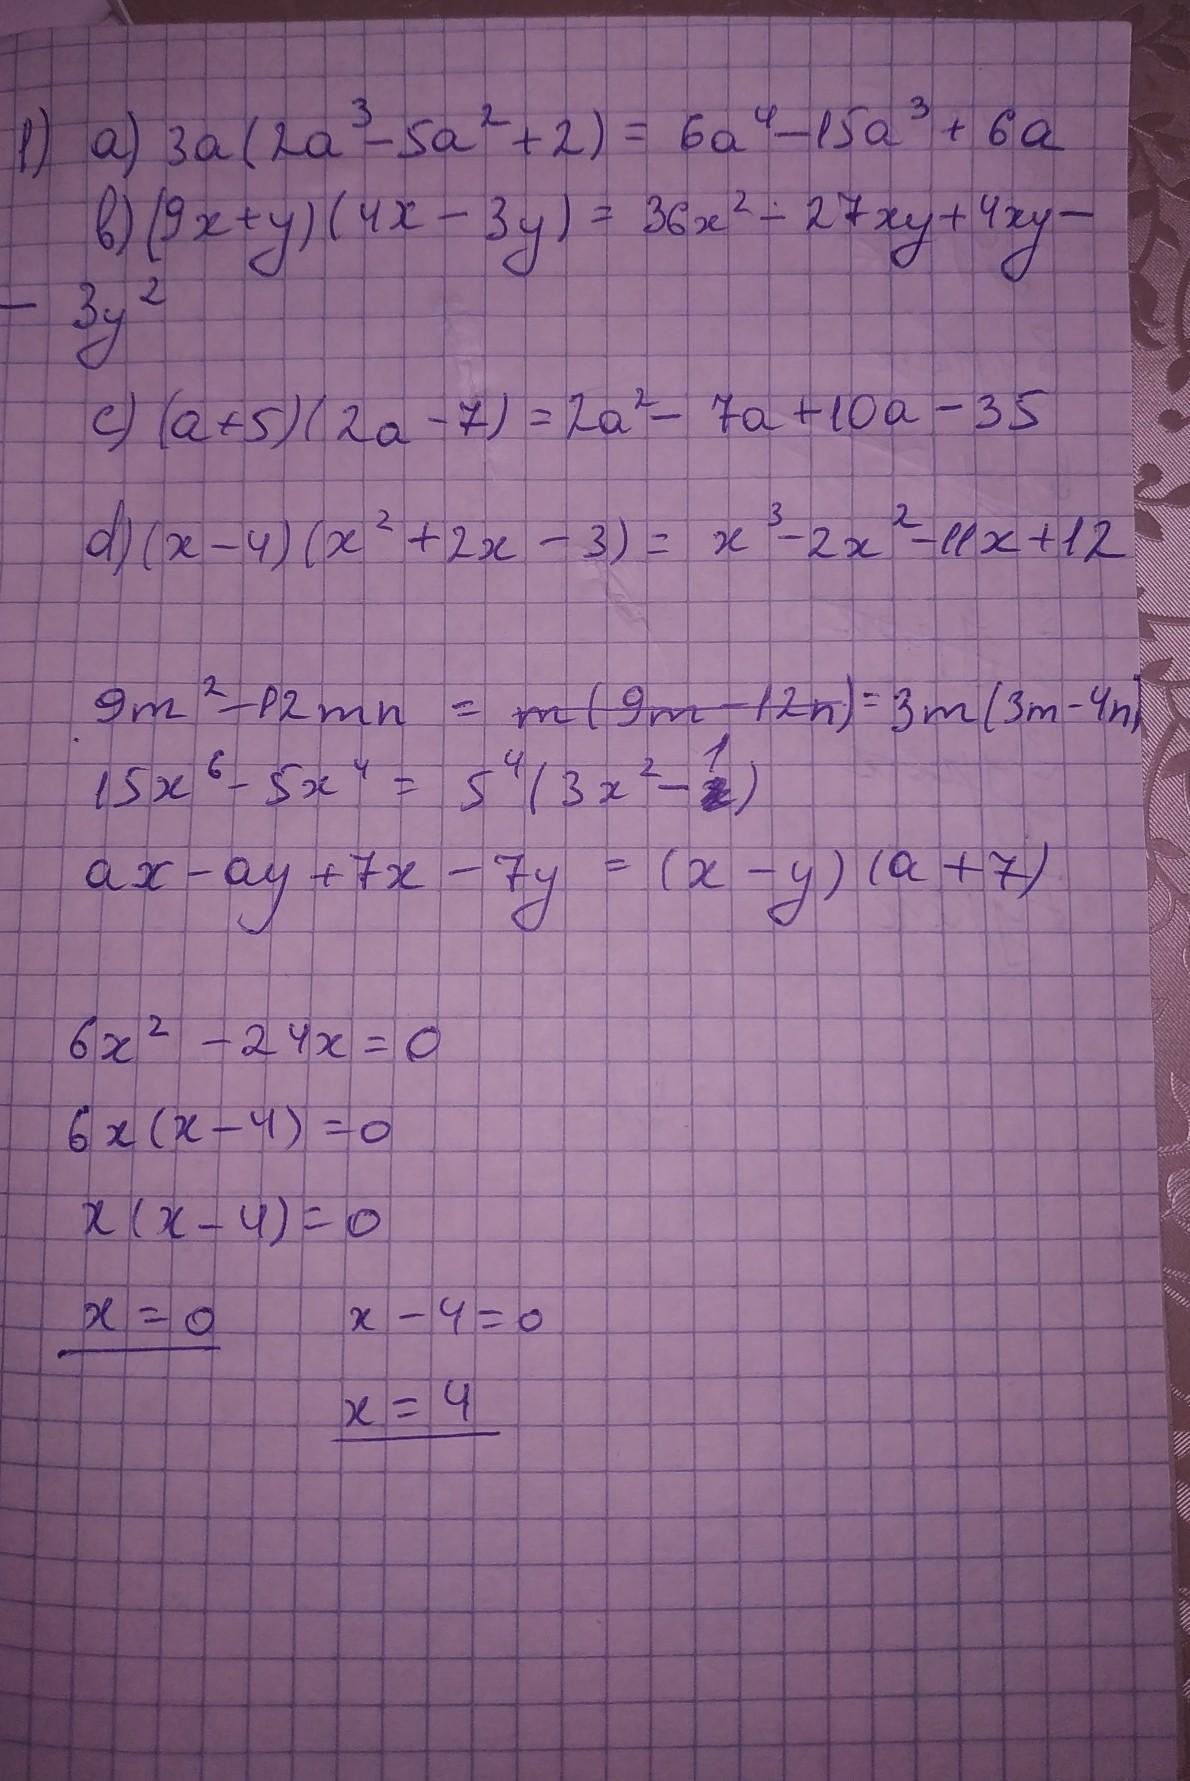 1) a) 3a(2a³-5a²+2) = 6a⁴-15a³+6a
b) (9x+y)(4x-3y) = 36x²-27xy+4xy-
- 3y²
c) (a+5)(2a-7) = 2a²-7a+10a-35
d) (x-4)(x²+2x-3) = x³-2x²-11x+12
9m²-12mn = m(9m-12n) = 3m(3m-4n)
15x⁶-5x⁴ = 5⁴(3x²-1)
ax-ay+7x-7y = (x-y)(a+7)
6x²-24x=0
6x(x-4)=0
x(x-4)=0
x=0 x-4=0
x=4